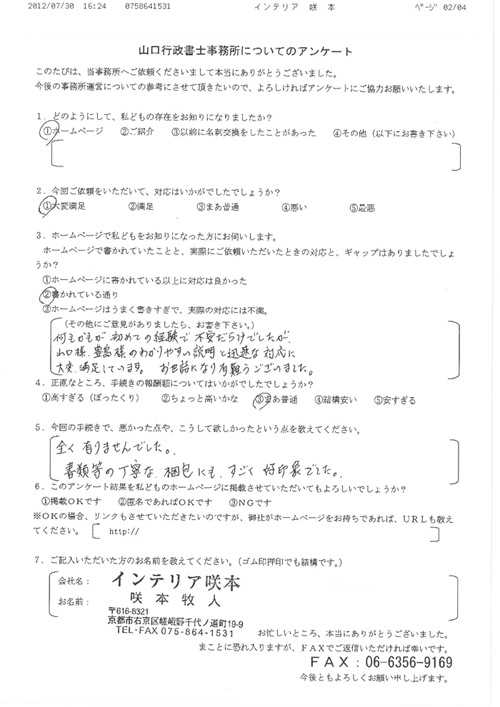 2012/07/30 16:24 0758641531 インテリア 咲 本 ﾍﾟｰｼﾞ 02/04
山口行政書士事務所についてのアンケート
このたびは、当事務所へご依頼くださいまして本当にありがとうございました。
今後の事務所運営についての参考にさせて頂きたいので、よろしければアンケートにご協力お願いいたします。
1．どのようにして、私どもの存在をお知りになりましたか？
①ホームページ ②ご紹介 ③以前に名刺交換をしたことがあった ④その他（以下にお書き下さい）
2．今回ご依頼をいただいて、対応はいかがでしたでしょうか？
①大変満足 ②満足 ③まあ普通 ④悪い ⑤最悪
3．ホームページで私どもをお知りになった方にお伺いします。
ホームページで書かれていたことと、実際にご依頼いただいたときの対応と、ギャップはありましたでしょ
うか？
①ホームページに書かれている以上に対応は良かった
②書かれている通り
③ホームページはうまく書きすぎで、実際の対応には不満。
（その他にご意見がありましたら、お書き下さい。）
何もかもが初めての経験で不安だらけでしたが、
山口様、豊島様のわかりやすい説明と迅速な対応に
大変満足しています。お世話になり有難うございました。
4．正直なところ、手続きの報酬額についてはいかがでしたでしょうか？
①高すぎる（ぼったくり） ②ちょっと高いかな ③まあ普通 ④結構安い ⑤安すぎる
5．今回の手続きで、悪かった点や、こうして欲しかったという点を教えてください。
全く有りませんでした。
書類等の丁寧な梱包にも、すごく好印象でした。
6．このアンケート結果を私どものホームページに掲載させていただいてもよろしいでしょうか？
①掲載ＯＫです ②匿名であればＯＫです ③ＮＧです
※ＯＫの場合、リンクもさせていただきたいのですが、御社がホームページをお持ちであれば、ＵＲＬも教え
てください。 http://
7．ご記入いただいた方のお名前を教えてください。（ゴム印押印でも結構です。）
会社名： インテリア咲本
お名前： 咲本牧人
〒616-8321
京都市右京区嵯峨野千代ノ道町19-9
TEL・FAX 075-864-1531
お忙しいところ、本当にありがとうございました。
まことに恐れ入りますが、ＦＡＸでご返信いただければ幸いです。
ＦＡＸ：06-6356-9169
今後ともよろしくお願い申し上げます。